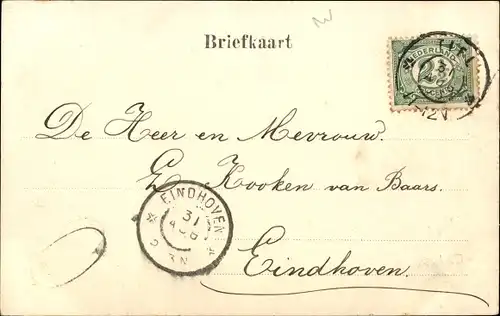 Briefkaart
NEDERLAND
2½
De Heer en Mevrouw.
Kooken van Baars.
EINDHOVEN
31
AUG
2 3N
Eindhoven.